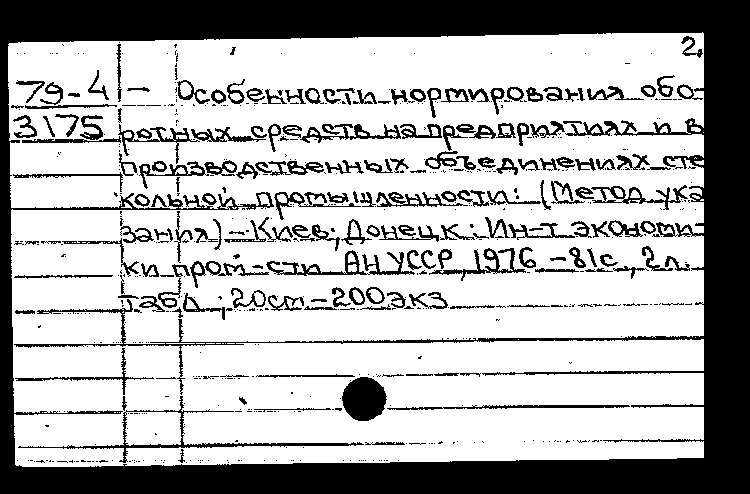 2.
79-4 — Особенности нормирования обо-
3175 ротных средств на предприятиях и в
производственных объединениях сте
кольной промышленности: (Метод ука
зания) - Киев; Донецк: Ин-т экономи-
ки пром-сти АН УССР, 1976 - 81с., 2л.
табл ; 20см - 200экз